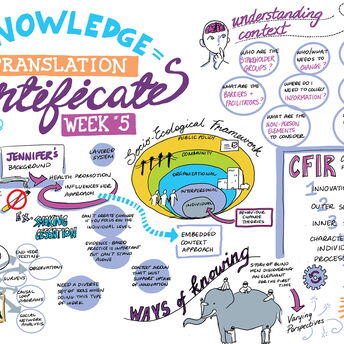 NOWLEDGE=
TRANSLATION
ertificates
WEEK #5
understanding
context
WHO ARE THE
STAKEHOLDER
GROUPS?
WHO/WHAT
NEEDS TO
CHANGE?
WHAT ARE THE
BARRIERS +
FACILITATORS?
WHERE DO I
NEED TO COLLECT
INFORMATION?
WHAT ARE THE
NON-PERSON
ELEMENTS
TO CONSIDER
JENNIFER'S
BACKGROUND
HEALTH PROMOTION
INFLUENCES HER
APPROACH
Socio-Ecological Framework
PUBLIC POLICY
COMMUNITY
ORGANIZATIONAL
INTERPERSONAL
INDIVIDUAL
BEHAVIOUR
CHANGE
THEORIES
CAN'T CREATE CHANGE
IF YOU FOCUS ON THE
INDIVIDUAL LEVEL
EVIDENCE-BASED
PRACTICE IS IMPORTANT
BUT CAN'T STAND
ALONE
EMBEDDED
CONTEXT
APPROACH
CFIR
INNOVATION
OUTER S
INNER
CHARACTE
INDIVID
PROCESS
OBSERVATIONS
SURVEYS
CAUSAL
LOOP
DIAGRAMS
SOCIAL
NETWORK
ANALYSIS
NEED A DIVERSE
SET OF TOOLS WHEN
DOING THIS TYPE OF
WORK
SUPPORT UPTAKE
OF INNOVATION
WAYS of knowing
STORY OF BLIND
MEN DISCOVERING
AN ELEPHANT
FOR THE FIRST
TIME
Varying
Perspectives